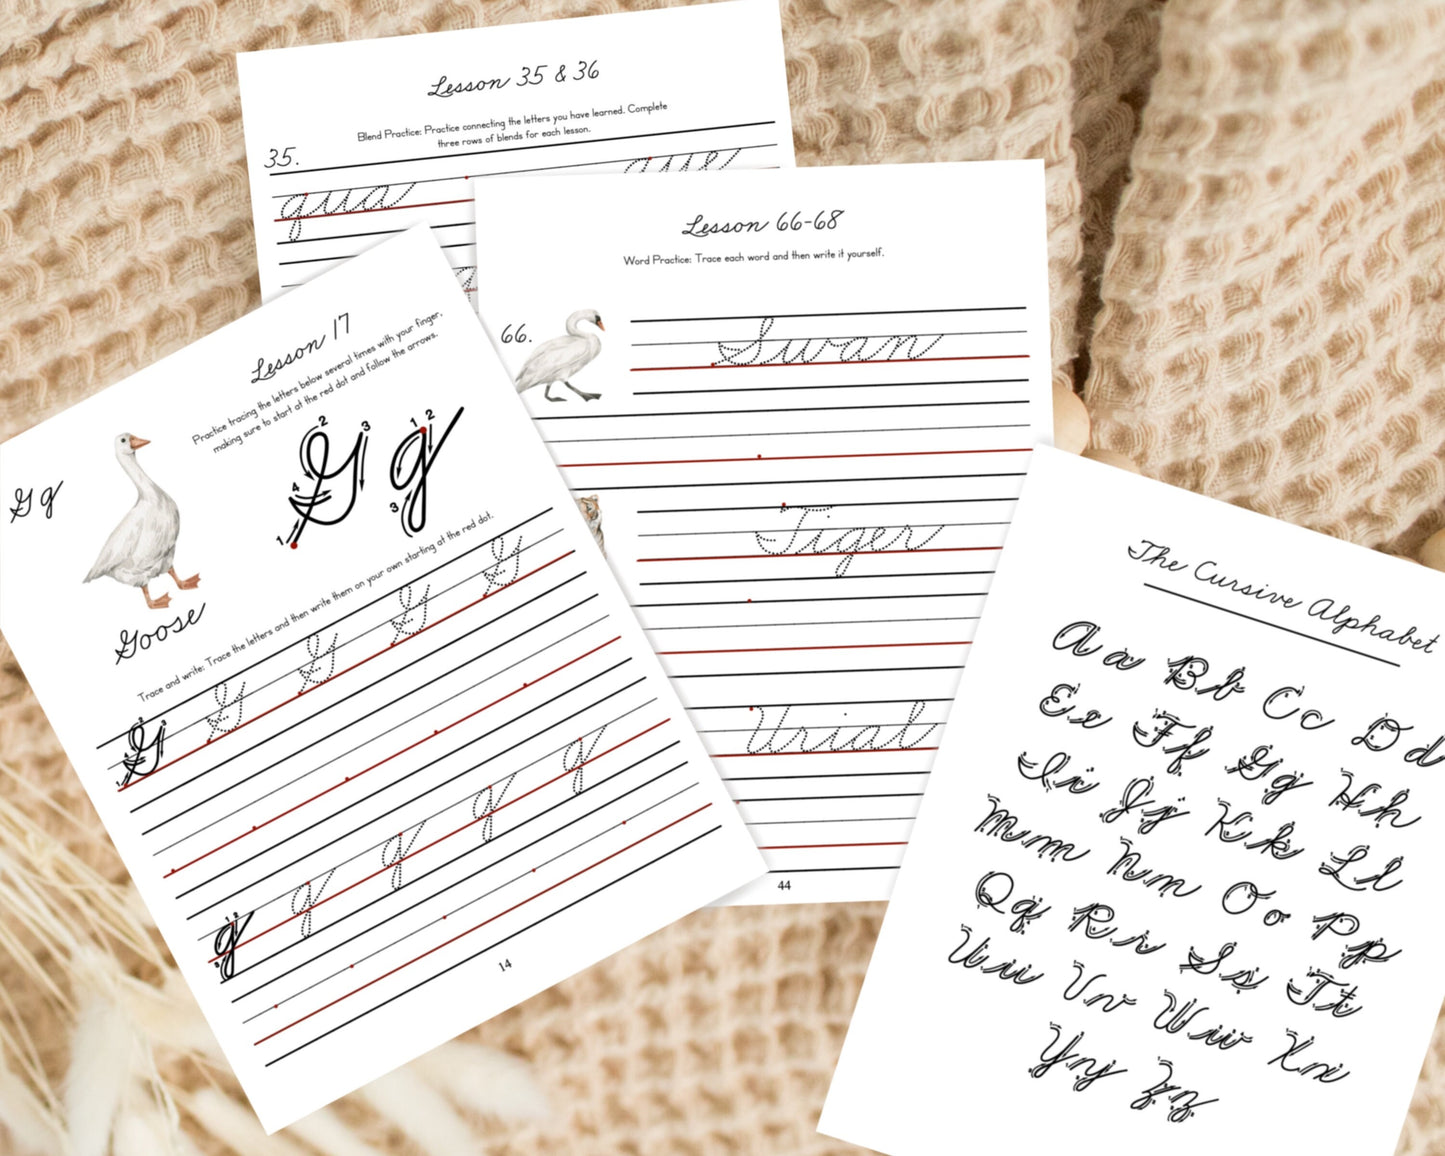 Lesson 35 & 36
Blend Practice: Practice connecting the letters you have learned. Complete
three rows of blends for each lesson.
35.
qua que
Lesson 66-68
Word Practice: Trace each word and then write it yourself.
66.
Swan
Tiger
Urial
44
Lesson 17
Practice tracing the letters below several times with your finger,
making sure to start at the red dot and follow the arrows.
G g
1 2 3 4 G 1 2 3 g
Goose
Trace and write: Trace the letters and then write them on your own starting at the red dot.
G G G G G
g g g g g
14
The Cursive Alphabet
A a B b C c D d
E e F f G g H h
I i J j K k L l
M m N n O o P p
Q q R r S s T t
U u V v W w X x
Y y Z z